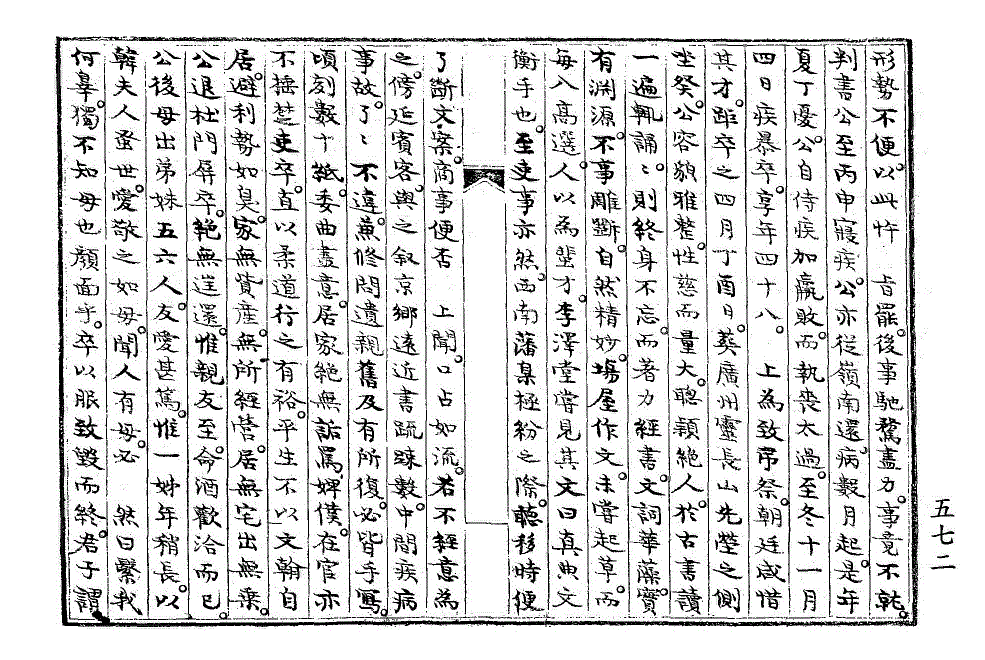 形勢不便。以此忤 旨罷。後事馳騖盡力。事竟不就。
判書公至丙申寢疾。公亦從嶺南還。病數月起。是年
夏丁憂。公自侍疾加羸敗。而執喪太過。至冬十一月
四日疾暴卒。享年四十八。 上為致吊祭。朝廷咸惜
其才。距卒之四月丁酉日。葬廣州靈長山先塋之側
坐癸。公容貌雅整。性慈而量大。聰穎絕人。於古書讀
一遍輒誦。誦則終身不忘。而著力經書。文詞華藻。實
有淵源。不事雕斲。自然精妙。場屋作文。未嘗起草。而
每入高選。人以為壆才。李澤堂嘗見其文曰真典文
衡手也。至吏事亦然。西南藩臬極紛之際。聽移時便
了斷文案。商事便否 上聞。口占如流。若不經意為
之。傍延賓客。與之叙京鄉遠近書疏踈數。中間疾病
事故。了了不違。兼修問遺親舊及有所復。必皆手寫。
頃刻數十紙。委曲盡意。居家絶無詬罵婢僕。在官亦
不捶楚吏卒。直以柔道行之有裕。平生不以文翰自
居。避利勢如臭。家無貲產。無所經營。居無宅出無乗。
公退杜門屏卒。絶無逢還。惟親友至。命酒歡洽而已。
公後母出弟妹五六人。友愛甚篤。惟一姊年稍長。以
韓夫人蚤世。愛敬之如母。聞人有母。必 然曰緊我
何辜。獨不知母也顏面乎。卒以服致毀而終。君子謂
五七二